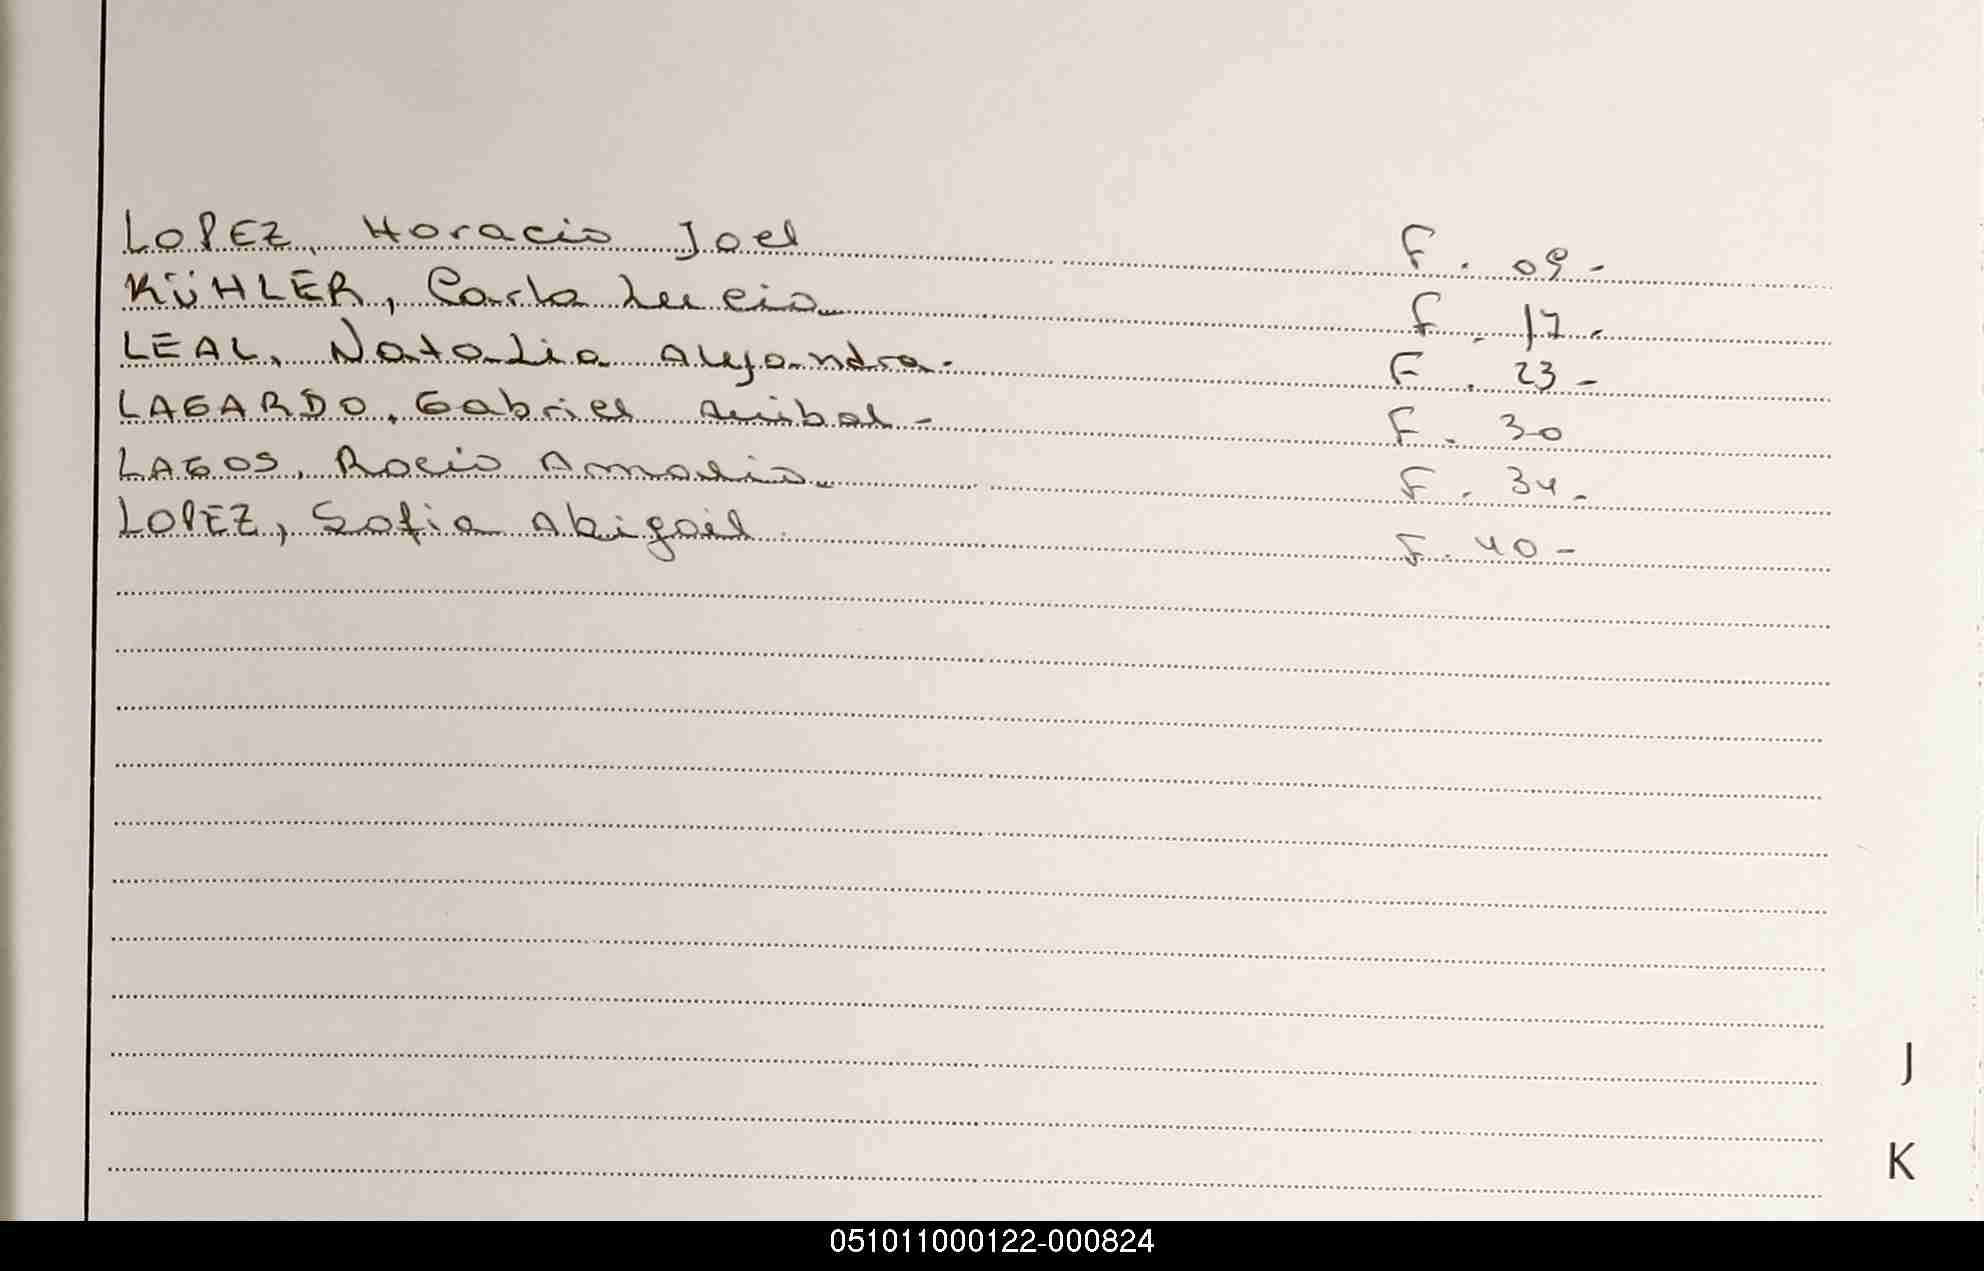 LOPEZ, Horacio Joel F. 09-
KÜHLER, Carla Lucia F. 17-
LEAL, Natalia Alejandra. F. 23-
LAGARDO, Gabriel Anibal- F. 30
LAGOS, Rocio Amalia F. 34-
LOPEZ, Sofia Abigail F. 40-
J
K
051011000122-000824